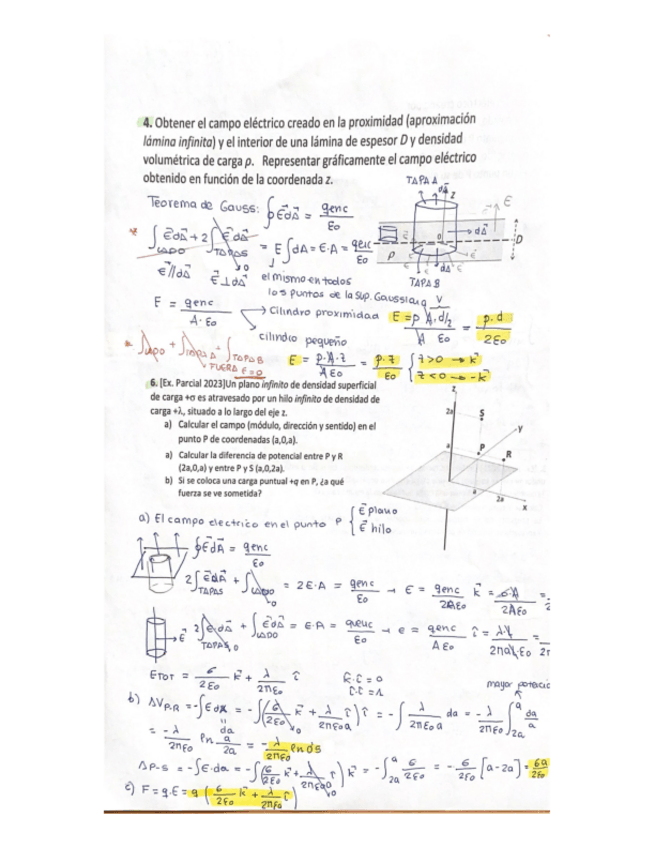 4. Obtener el campo eléctrico creado en la proximidad (aproximación
lámina infinita) y el interior de una lámina de espesor D y densidad
volumétrica de carga ρ. Representar gráficamente el campo eléctrico
obtenido en función de la coordenada z.
TAPA A
dA
z
E
Teorema de Gauss: ∮ E dA = qenc / ε0
∫LADO E dA + 2∫TAPAS E dA = E ∫ dA = E·A = qenc / ε0
dA
D
ρ
TAPA B
E // dA E ⊥ dA el mismo en todos
los puntos de la sup. Gaussiana
E = qenc / A·ε0 → Cilindro proximidad E = ρ A·d/2 / A ε0 = ρ·d / 2ε0
cilindro pequeño
E = ρ·A·z / A ε0 = ρ·z / ε0 { z > 0 → k
z < 0 → -k
∫LADO + ∫TAPA A + ∫TAPA B
FUERA E=0
6. [Ex. Parcial 2023]Un plano infinito de densidad superficial
de carga +σ es atravesado por un hilo infinito de densidad de
carga +λ, situado a lo largo del eje z.
a) Calcular el campo (módulo, dirección y sentido) en el
punto P de coordenadas (a,0,a).
a) Calcular la diferencia de potencial entre P y R
(2a,0,a) y entre P y S (a,0,2a).
b) Si se coloca una carga puntual +q en P, ¿a qué
fuerza se ve sometida?
z
2a
S
y
a
P
R
a
2a
x
a) El campo electrico en el punto P { E plano
E hilo
∮ E dA = qenc / ε0
2∫TAPAS E dA + ∫LADO = 2E·A = qenc / ε0 → E = qenc / 2Aε0 k = σ·A / 2Aε0 =
E 2∫TAPAS E dA + ∫LADO E dA = E·A = qenc / ε0 → e = qenc / A ε0 i =
ETOT = σ / 2ε0 k + λ / 2πε0 i
k·i = 0
i·i = 1
mayor potencia
b) ΔVP-R = -∫ E dx = -∫ (σ / 2ε0 k + λ / 2πε0 a i) i = -∫ λ / 2πε0 a da = -λ / 2πε0 ∫ a 2a da / a
= -λ / 2πε0 ln a / 2a = -λ / 2πε0 ln 0'5
ΔP-S = -∫ E·da = -∫ (σ / 2ε0 k + λ / 2πε0 a i) k = -∫ a 2a σ / 2ε0 = -σ / 2ε0 [a-2a] = σa / 2ε0
c) F = q·E = q (σ / 2ε0 k + λ / 2πε0 i)